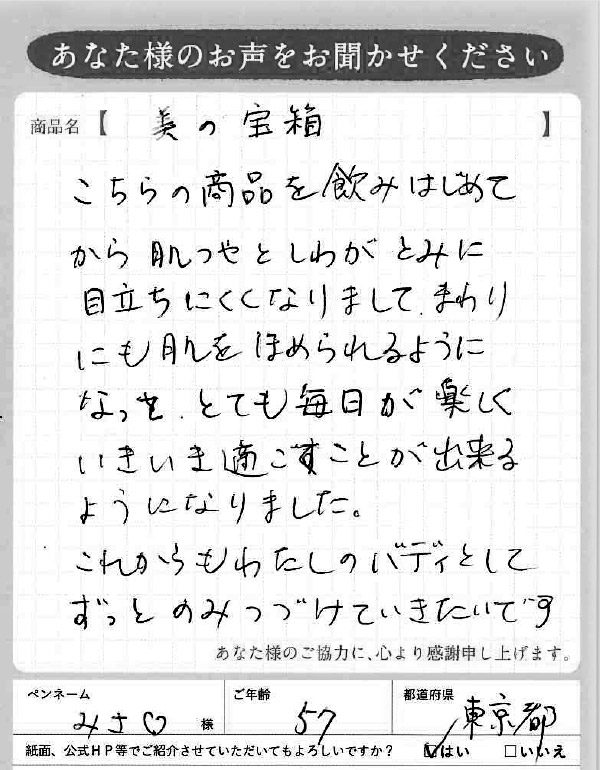 あなた様のお声をお聞かせください
商品名【 美の宝箱 】
こちらの商品を飲みはじめて
から肌つやとしわがとみに
目立ちにくくなりまして、まわり
にも肌をほめられるように
なって、とても毎日が楽しく
いきいき過ごすことが出来る
ようになりました。
これからもわたしのバディとして
ずっとのみつづけていきたいです
あなた様のご協力に、心より感謝申し上げます。
ペンネーム ご年齢 都道府県
みさ♡ 様 57 東京都
紙面、公式HP等でご紹介させていただいてもよろしいですか? ☑はい □いいえ